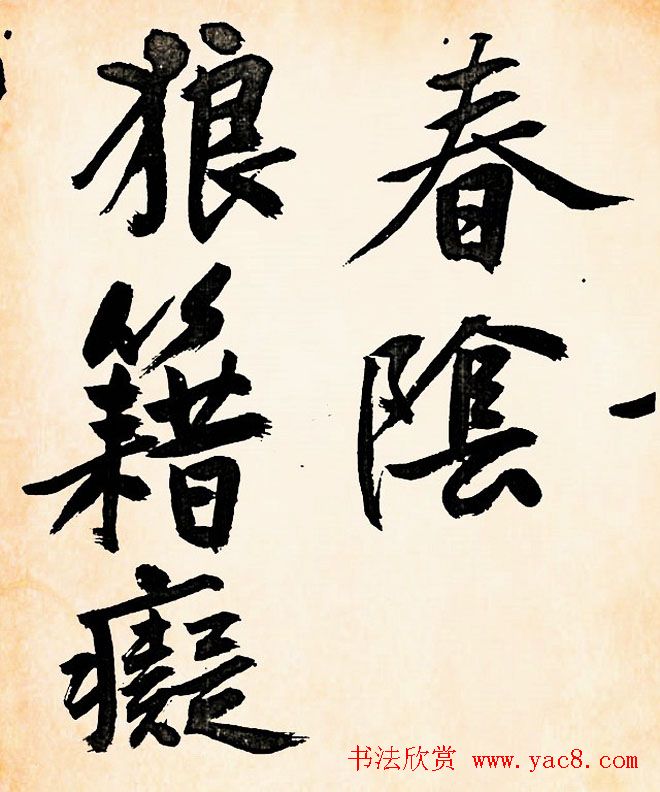 春陰
狼籍癡
书法欣赏 www.yac8.com